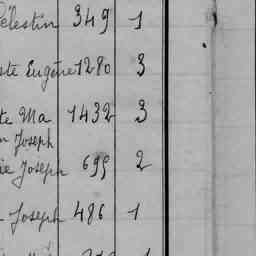 Célestin 349 1
ste Eugène 1280 3
te Ma 1432 3
n Joseph
ie Joseph 699 2
Joseph 486 1